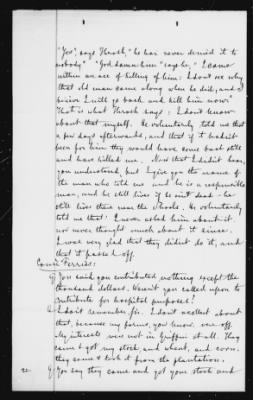 "Yes", says Thrash, "he has never denied it to
nobody" "God damn him" says he, "I came
within an ace of killing of him: I dont see why
that old man came along when he did, and I
believe I will go back and kill him now"
That is what Thrash says: I dont know
about that myself. He voluntarily told me that
a few days afterwards, and that if it hadn't
been for him they would have come back still
and have killed me. Now that I didn't hear,
you understand, but I give you the name of
the man who told me and he is a responsible
man, and he still lives if he aint dead - he
still lives there near the Shoals. He voluntarily
told me that: I never asked him about it,
nor never thought much about it since.
I was very glad that they didnt do it, and
that it passed off.
Com'r Ferriss:
Q You said you contributed nothing except the
thousand dollars. Weren't you called upon to
contribute for hospital purposes?
A I dont remember, sir. I dont recollect about
that, because my farms, you know, were off.
My interests were not in Griffin at all. They
came & got my stock, and wheat, and corn:
they came & took it from the plantation.
Q You say they came and got your stock and